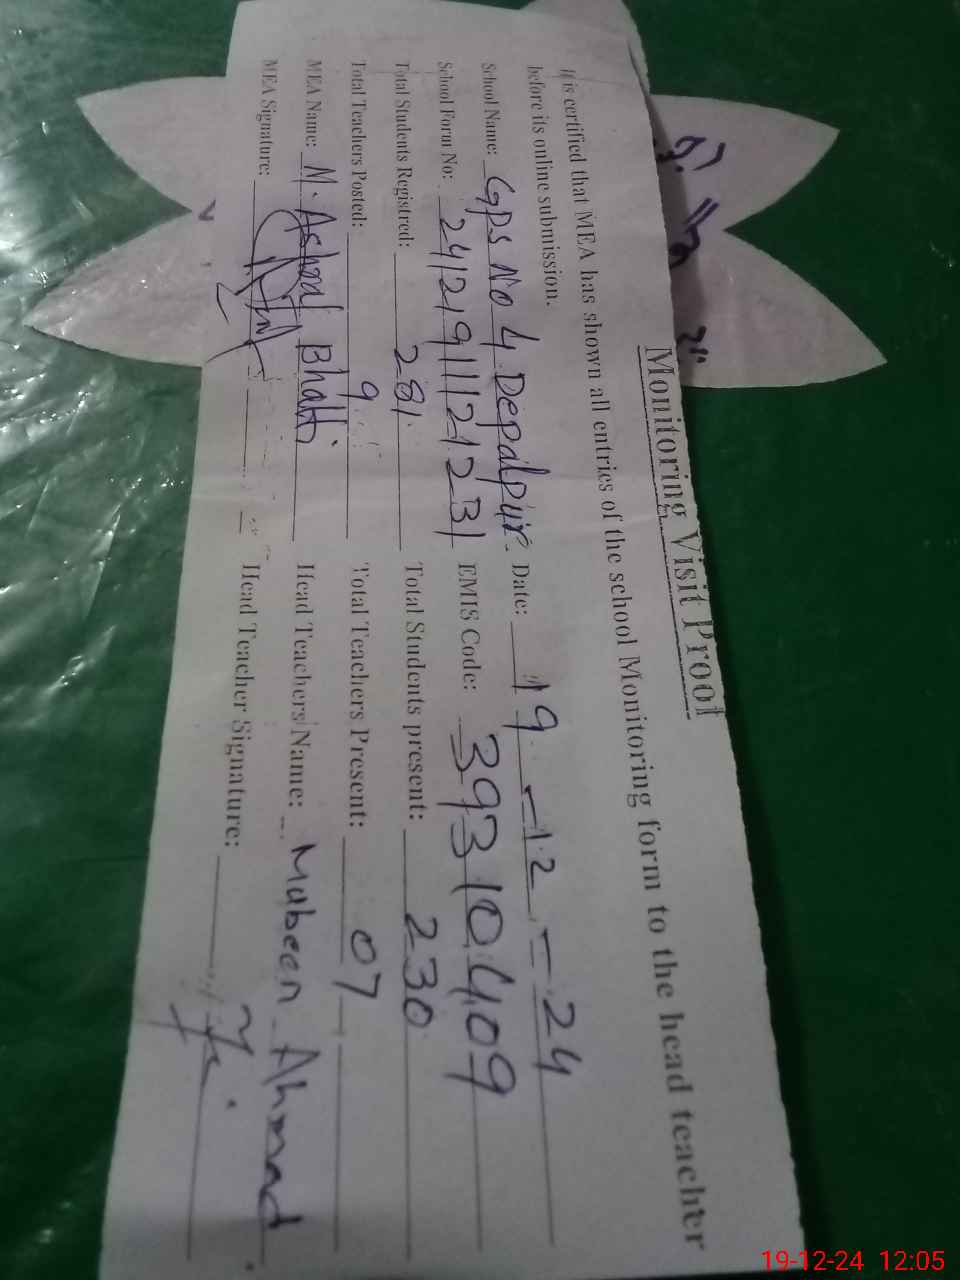 Monitoring Visit Proof
It is certified that MEA has shown all entries of the school Monitoring form to the head teacher
before its online submission.
School Name: GPS No 4 Depalpur. Date: 19-12-24
School Form No: EMIS Code: 39310409
Total Students Registred: 281 Total Students present: 230
Total Teachers Posted: 9 Total Teachers Present: 07
MEA Name: M. Ashraf Bhatti Head Teachers Name: Mubeen Ahmad
MEA Signature: Head Teacher Signature:
19-12-24 12:05